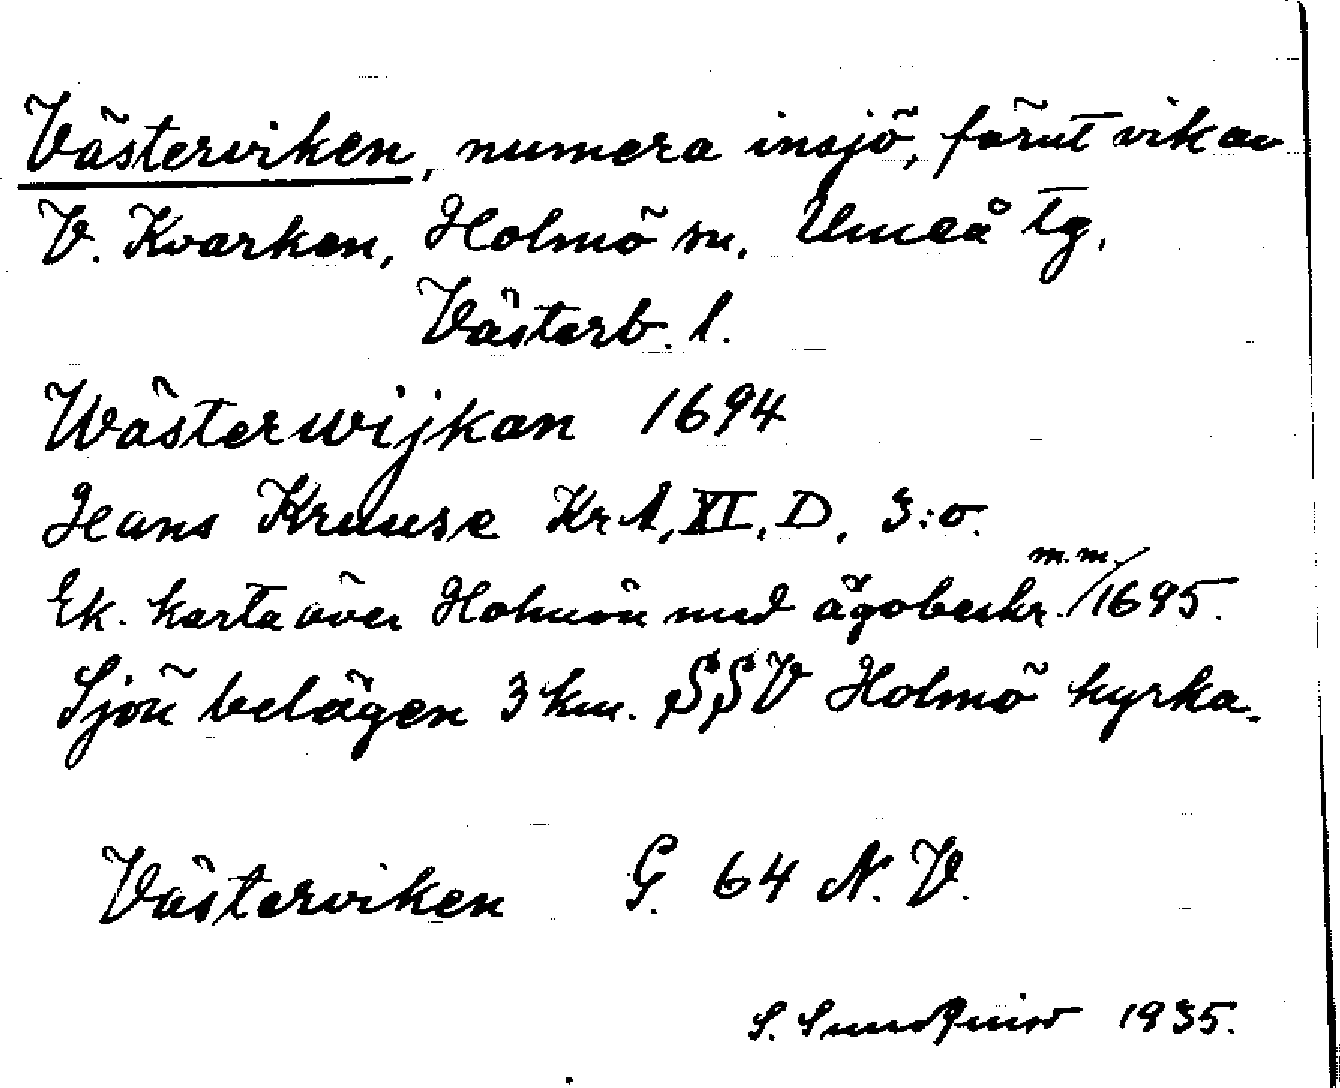 Västerviken, numera insjö, förut vik av
V. Kvarken, Holmö sn. Umeå tg.
Västerb. l.
Wästerwijkan 1694
Hans Kruuse Kr. A, XI, D, 3:o.
Ek. karta över Holmön med ägobeskr. m.m./1695.
Sjön belägen 3 km. SSV Holmö kyrka.
Västerviken G. 64 N.V.
S. Sundquist 1935.